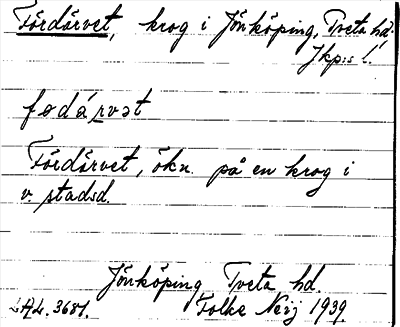 Fördärvet, krog i Jönköping, Tveta hd.
Jkp:s l.
fodárvət
Fördärvet, ökn. på en krog i
v. stadsd.
Jönköping Tveta hd.
Folke Nerj 1939.
AL. 3681.